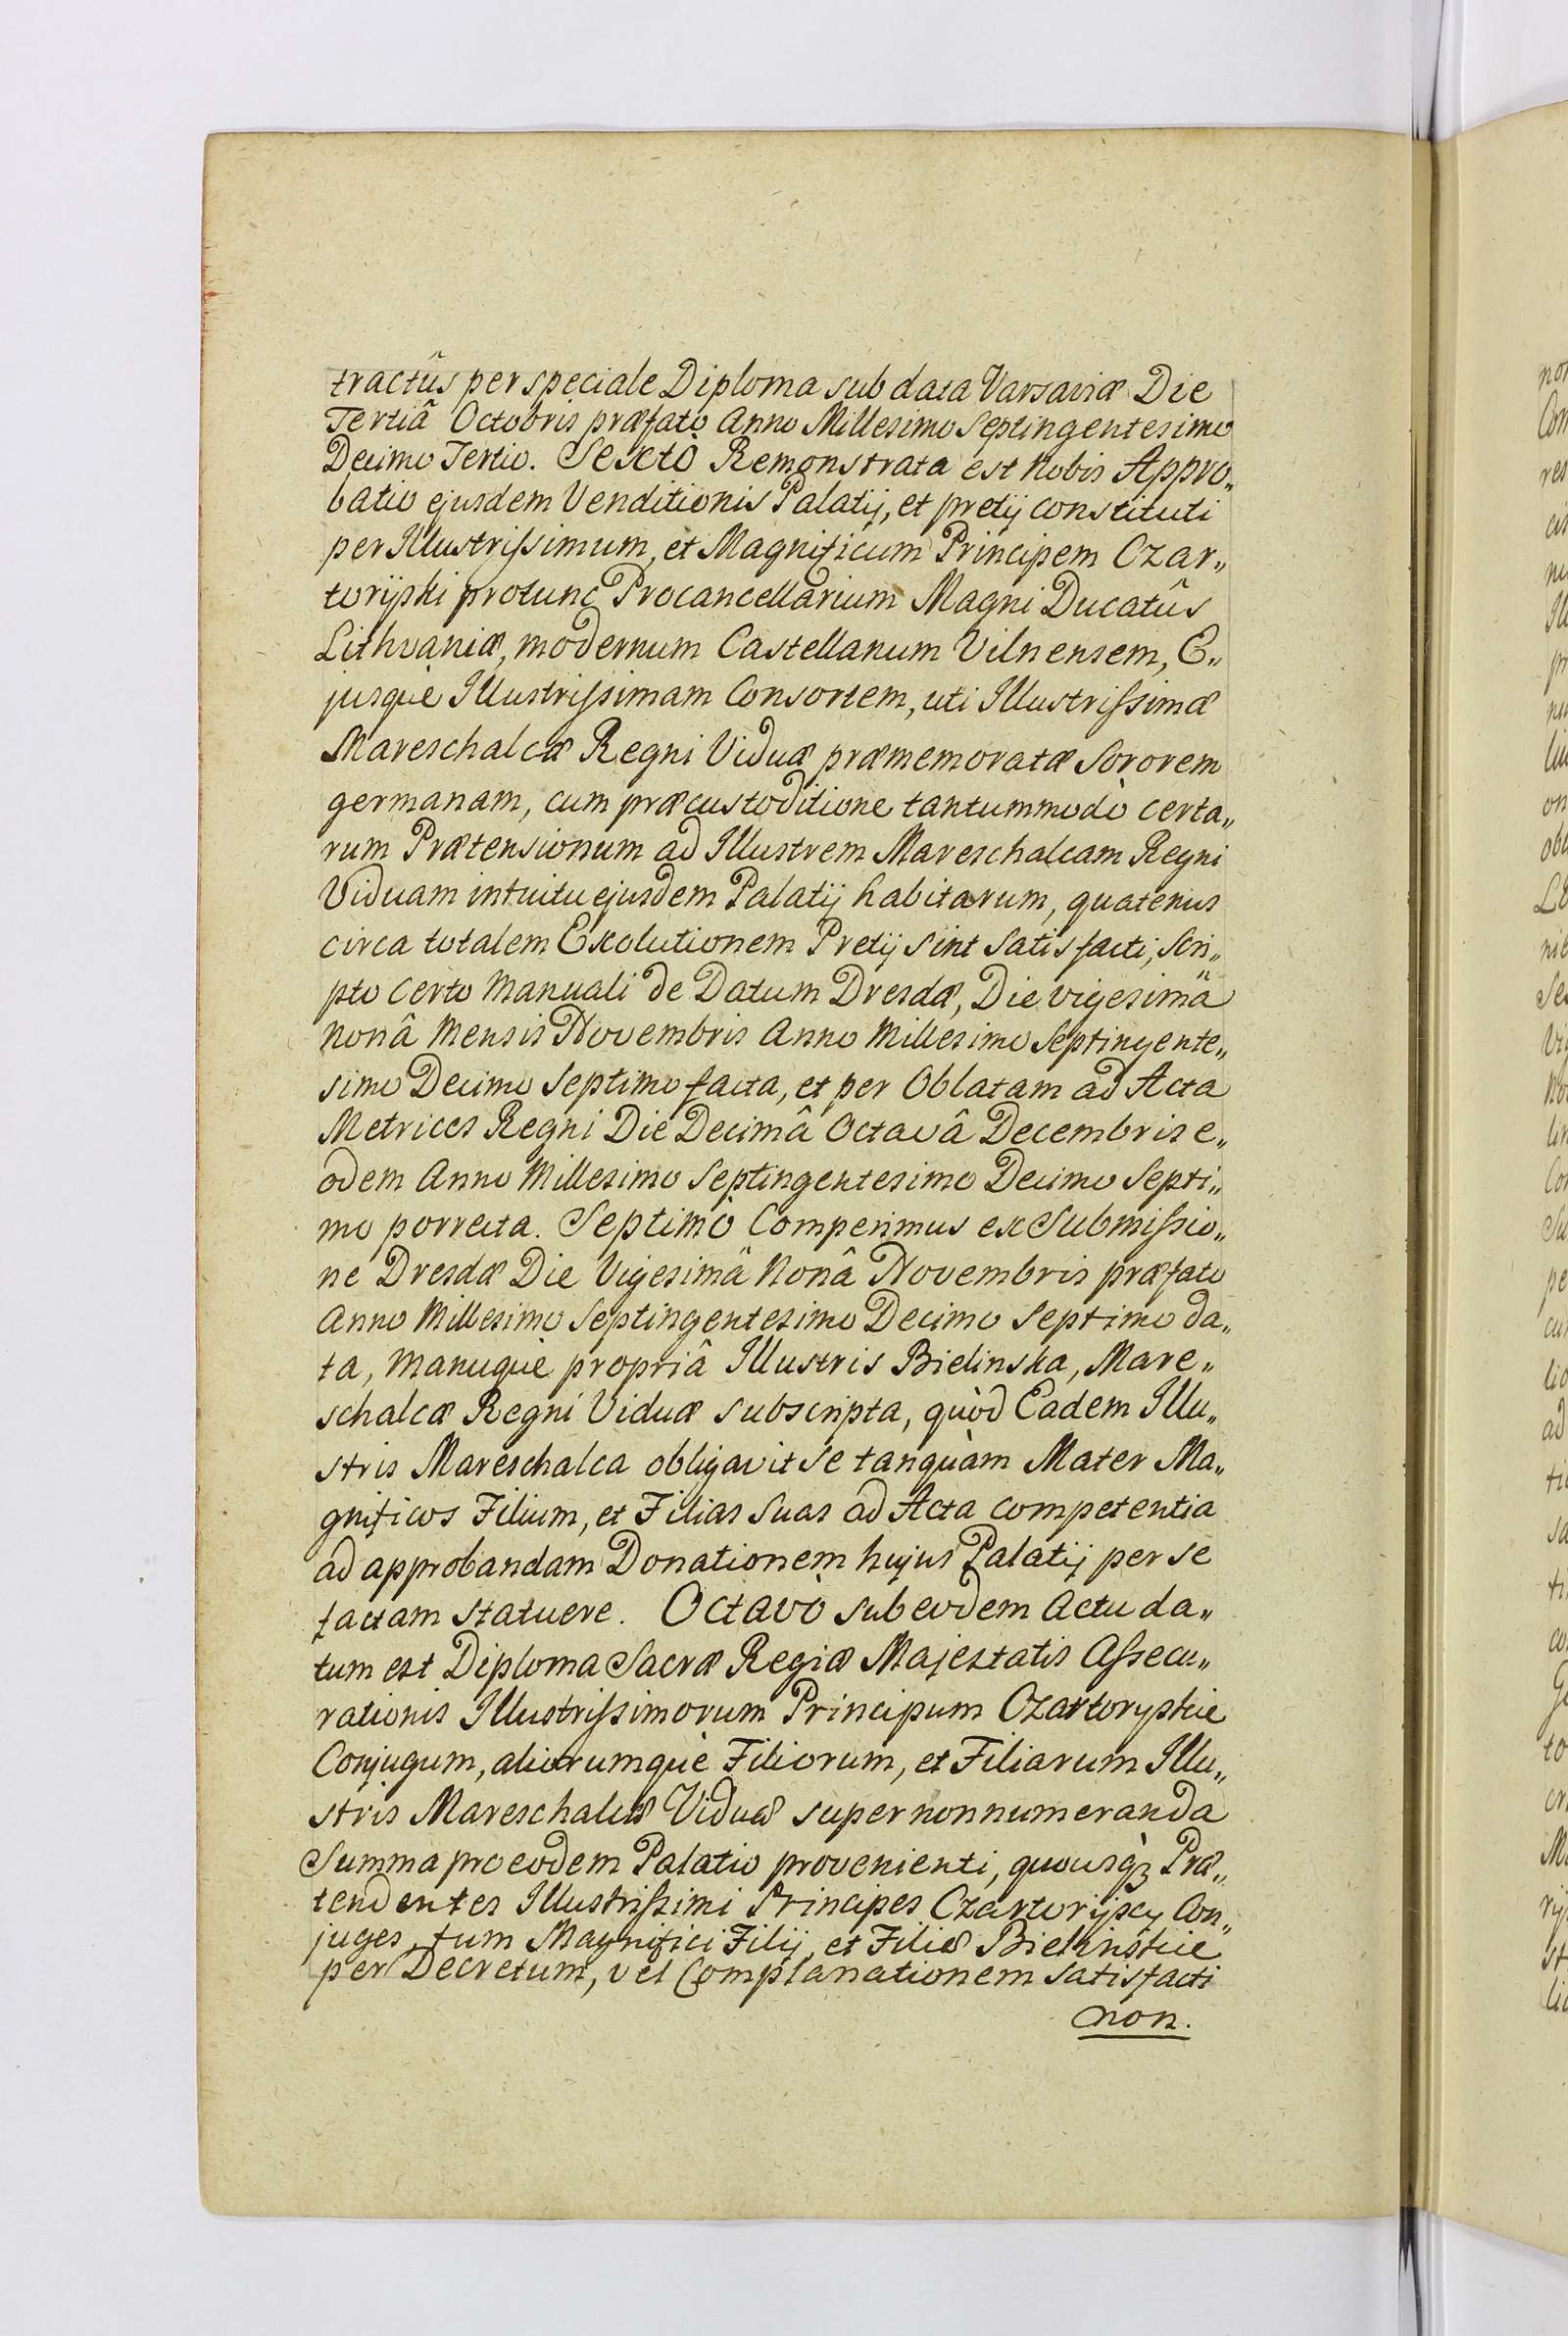 tractûs per speciale Diploma sub data Varsaviæ Die
Tertiâ Octobris præfato Anno Millesimo Septingentesimo
Decimo Tertio. Sextò Remonstrata est Nobis Appro„
batio ejusdem Venditionis Palatij, et pretij constituti
per Illustrissimum, et Magnificum Principem Czar„
toryski protunc Procancellarium Magni Ducatûs
Lithvaniæ, modernum Castellanum Vilnensem, E„
jusquè Illustrissimam Consortem, uti Illustrissimæ
Mareschalcæ Regni Viduæ præmemoratæ Sororem
germanam, cum præcustoditione tantummodò certa„
rum Prætensionum ad Illustrem Mareschalcam Regni
Viduam intuitu ejusdem Palatij habitarum, quatenus
circa totalem Exolutionem Pretij sint satisfacti, Scri„
pto certo Manuali de Datum Dresdæ, Die vigesimâ
Nonâ Mensis Novembris Anno Millesimo Septingente„
simo Decimo Septimo facta, et per Oblatam ad Acta
Metrices Regni Die Decimâ Octavâ Decembris e„
odem Anno Millesimo Septingentesimo Decimo Septi„
mo porrecta. Septimò Comperimus ex Submissio„
ne Dresdæ Die Vigesimâ Nonâ Novembris præfato
Anno Millesimo Septingentesimo Decimo Septimo da„
ta, Manuquè propriâ Illustris Bielinska, Mare„
schalcæ Regni Viduæ subscripta, quòd Eadem Illu„
stris Mareschalca obligavit se tanquàm Mater Ma„
gnificos Filium, et Filias Suas ad Acta competentia
ad approbandam Donationem hujus Palatij per se
factam statuere. Octavò sub eodem Actu da„
tum est Diploma Sacræ Regiæ Majestatis Assecu„
rationis Illustrissimorum Principum Czartoryskie
Conjugum, aliorumquè Filiorum, et Filiarum Illu„
stris Mareschalcæ Viduæ super non numeranda
Summa pro eodem Palatio provenienti, quousq̀ꝫ Præ„
tendentes Illustrissimi Principes Czartoryscy Con„
juges, tum Magnifici Filij, et Filiæ Bielinskie
per Decretum, vel Complanationem satisfacti
non.